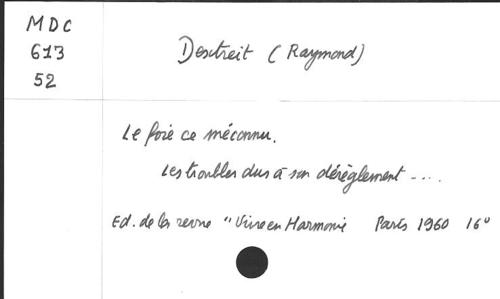 MDC
613
52
Dextreit (Raymond)
Le foie ce méconnu.
Les troubles dus à son dérèglement ....
Ed. de la revue "Vivre en Harmonie Paris 1960 16°